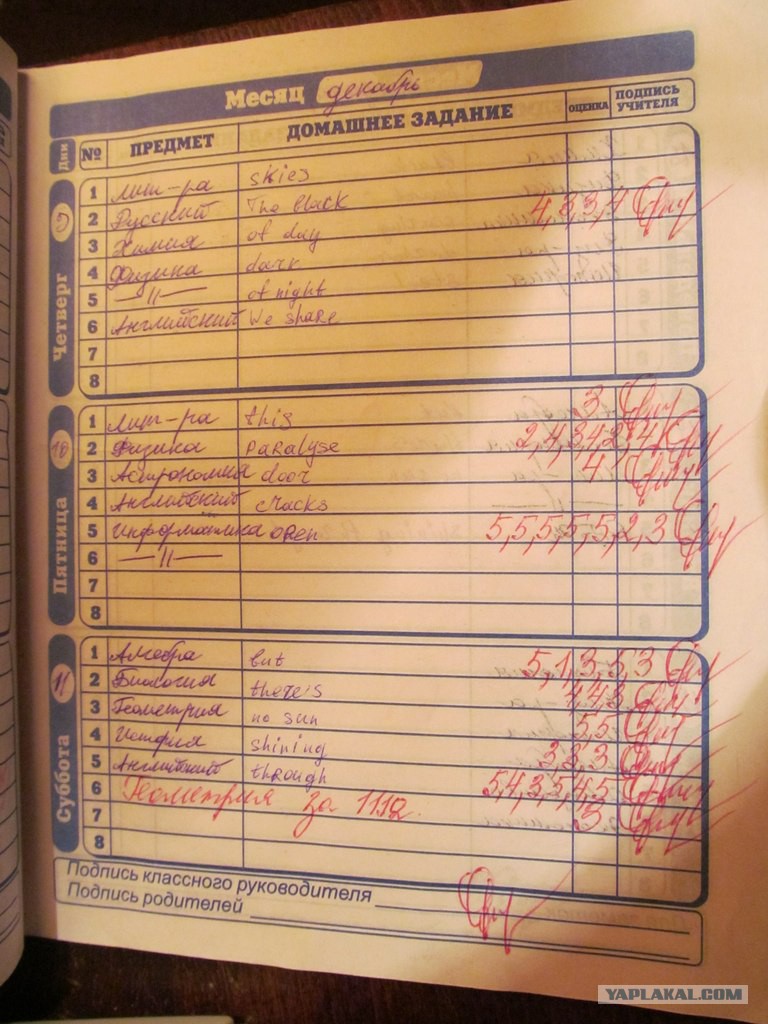 Месяц декабрь
Дни № ПРЕДМЕТ ДОМАШНЕЕ ЗАДАНИЕ ОЦЕНКА ПОДПИСЬ УЧИТЕЛЯ
Четверг 9
1 Лит-ра skies
2 Русский The black 4,3,3,4
3 Химия of day
4 Физика dark
5 —//— of night
6 Английский We share
7
8
Пятница 10
1 Лит-ра this 3
2 Физика paralyse 2,4,3,4,2,4
3 Астрономия door 4
4 Английский cracks
5 Информатика open 5,5,5,5,5,2,3
6 —//—
7
8
Суббота 11
1 Алгебра but 5,1,3,5,3
2 Биология there's 4,4,3
3 Геометрия no sun 5,5
4 История shining 3,3,3
5 Английский through 5,4,3,5,4,5
6 Геометрия за 3
7
8
Подпись классного руководителя
Подпись родителей
YAPLAKAL.COM